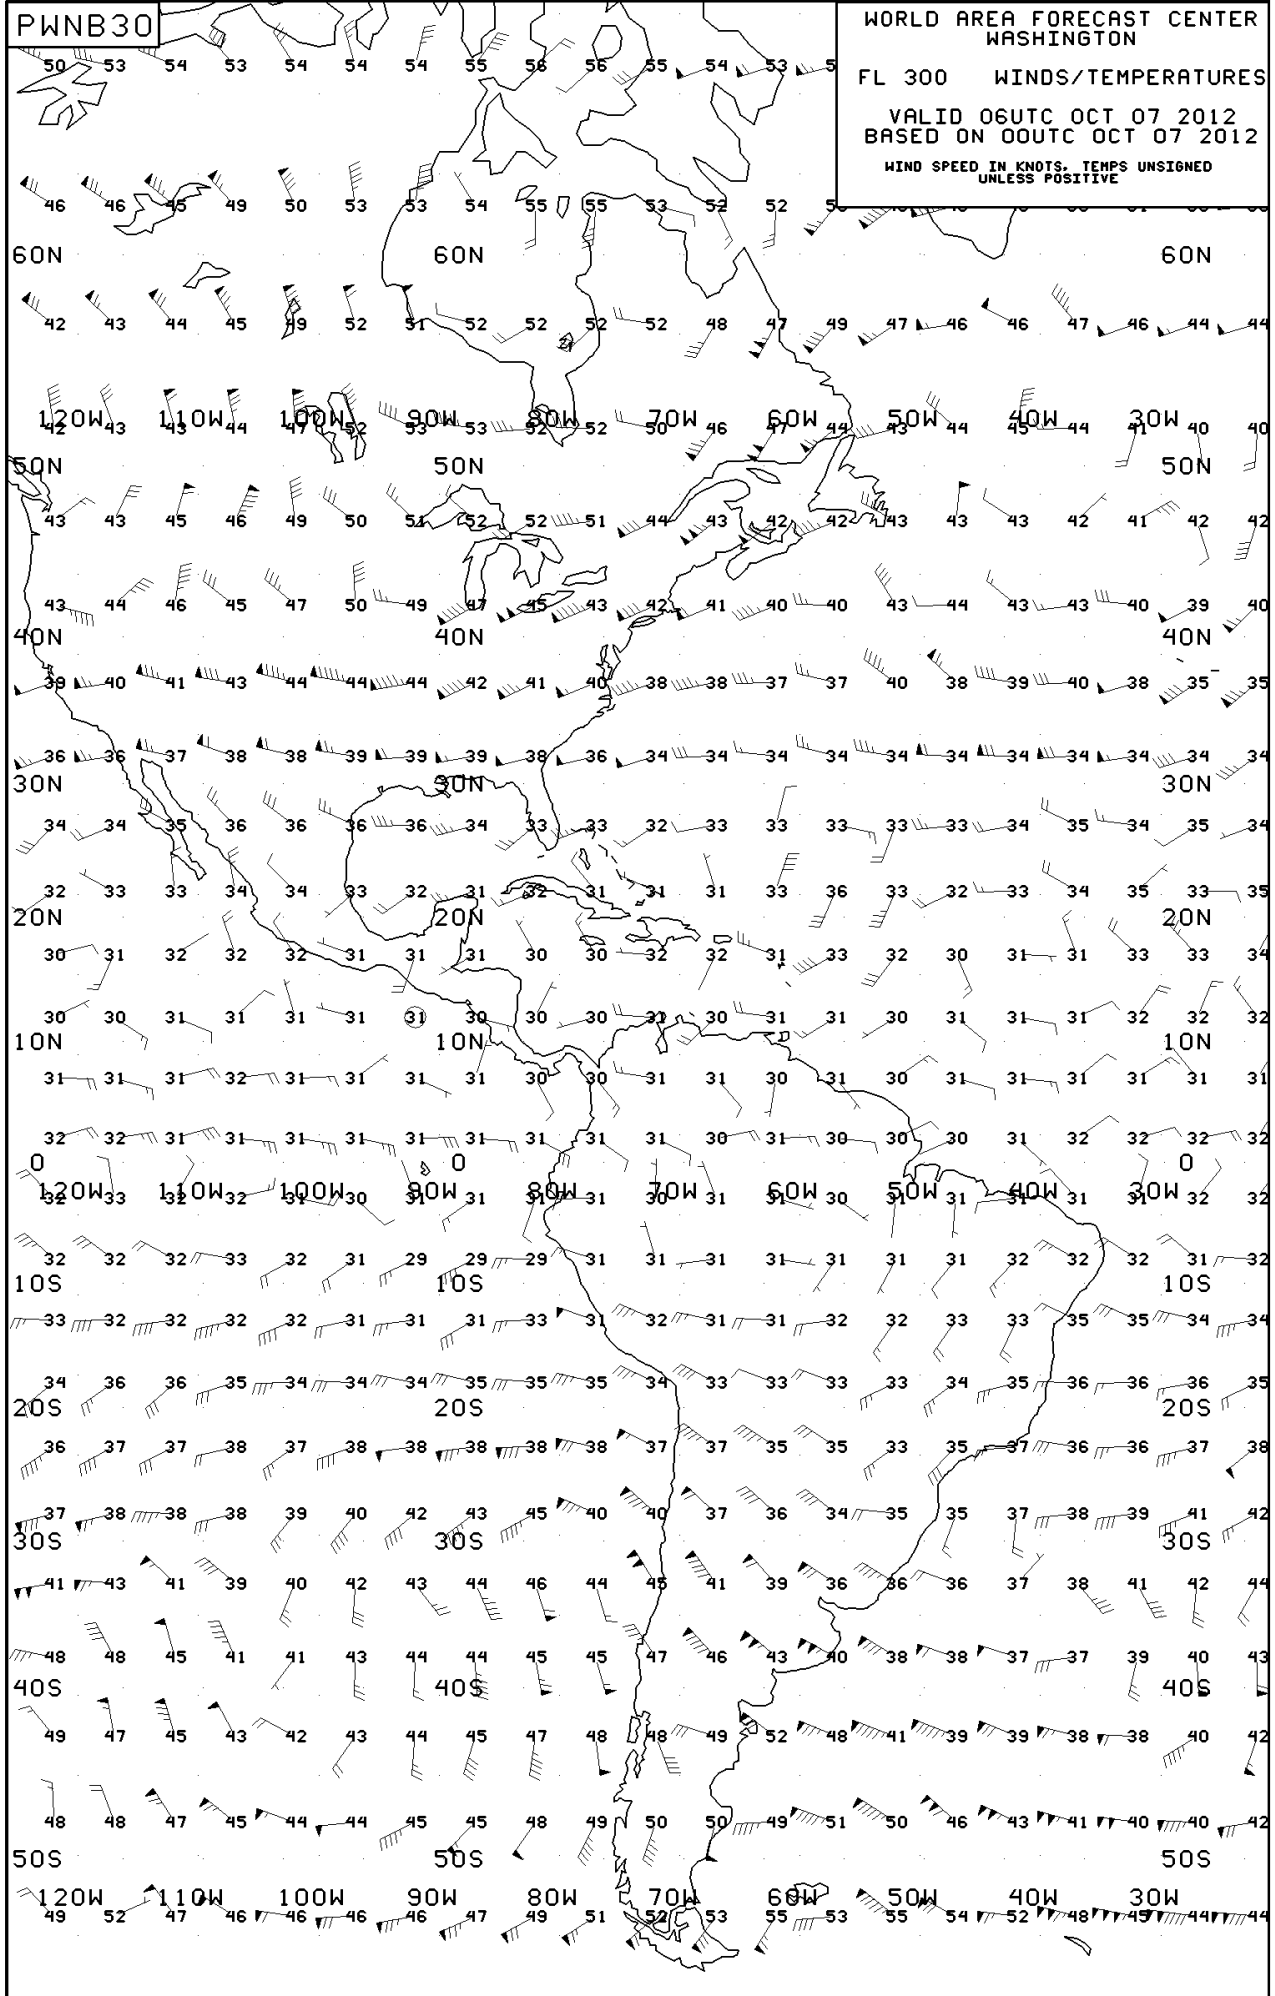 PWNB30
WORLD AREA FORECAST CENTER
WASHINGTON
FL 300 WINDS/TEMPERATURES
VALID 06UTC OCT 07 2012
BASED ON 00UTC OCT 07 2012
WIND SPEED IN KNOTS, TEMPS UNSIGNED
UNLESS POSITIVE
50 53 54 53 54 54 54 55 56 56 55 54 53
46 46 45 49 50 53 53 54 55 55 53 52 52
60N 60N 60N
42 43 44 45 49 52 51 52 52 52 52 48 47 49 47 46 46 47 46 44 44
120W 110W 100W 90W 80W 70W 60W 50W 40W 30W
42 43 43 44 47 52 53 53 52 52 50 46 47 44 43 44 45 44 41 40 40
50N 50N 50N
43 43 45 46 49 50 51 52 52 51 44 43 42 42 43 43 43 42 41 42 42
43 44 46 45 47 50 49 47 45 43 42 41 40 40 43 44 43 43 40 39 40
40N 40N 40N
39 40 41 43 44 44 44 42 41 40 38 38 37 37 40 38 39 40 38 35 35
36 36 37 38 38 39 39 39 38 36 34 34 34 34 34 34 34 34 34 34 34
30N 30N 30N
34 34 35 36 36 36 36 34 33 33 32 33 33 33 33 33 34 35 34 35 34
32 33 33 34 34 33 32 31 32 31 31 31 33 36 33 32 33 34 35 33 35
20N 20N 20N
30 31 32 32 32 31 31 31 30 30 32 32 31 33 32 30 31 31 33 33 34
30 30 31 31 31 31 31 30 30 30 31 30 31 31 30 31 31 31 32 32 32
10N 10N 10N
31 31 31 32 31 31 31 31 30 30 31 31 30 31 30 31 31 31 31 31 31
32 32 31 31 31 31 31 31 31 31 31 30 31 30 30 30 31 32 32 32 32
0 0 0
120W 110W 100W 90W 80W 70W 60W 50W 40W 30W
32 33 32 32 31 30 31 31 31 31 30 31 31 30 31 31 31 31 31 32 32
32 32 32 33 32 31 29 29 29 31 31 31 31 31 31 31 32 32 32 31 32
10S 10S 10S
33 32 32 32 32 31 31 31 33 31 32 31 31 32 32 33 33 35 35 34 34
34 36 36 35 34 34 34 35 35 35 34 33 33 33 33 34 35 36 36 36 35
20S 20S 20S
36 37 37 38 37 38 38 38 38 38 37 37 35 35 33 35 37 36 36 37 38
37 38 38 38 39 40 42 43 45 40 40 37 36 34 35 35 37 38 39 41 42
30S 30S 30S
41 43 41 39 40 42 43 44 46 44 45 41 39 36 36 36 37 38 41 42 44
48 48 45 41 41 43 44 44 45 45 47 46 43 40 38 38 37 37 39 40 43
40S 40S 40S
49 47 45 43 42 43 44 45 47 48 48 49 52 48 41 39 39 38 38 40 42
48 48 47 45 44 44 45 45 48 49 50 50 49 51 50 46 43 41 40 40 42
50S 50S 50S
120W 110W 100W 90W 80W 70W 60W 50W 40W 30W
49 52 47 46 46 46 46 47 49 51 52 53 55 53 55 54 52 48 45 44 44